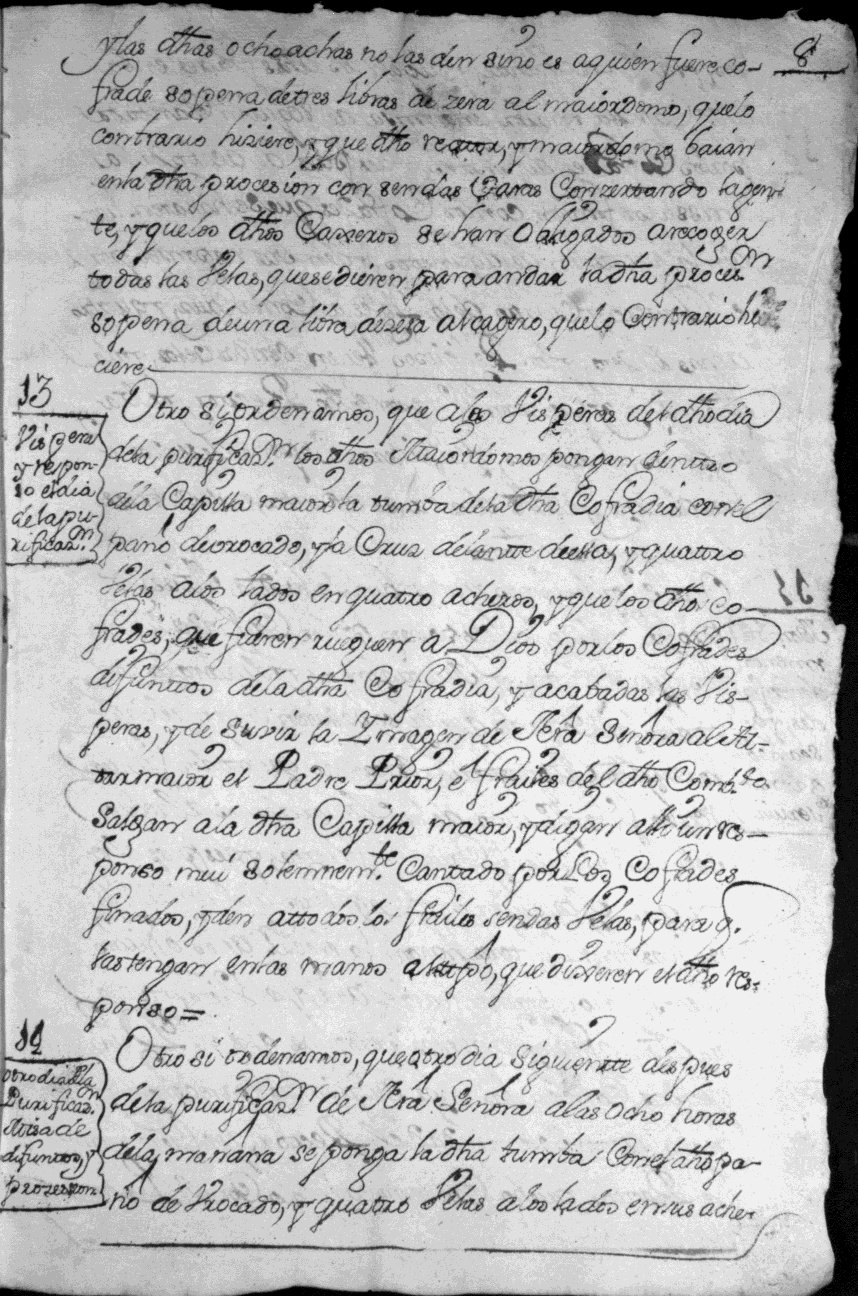 8
y las dhas ocho achas no las den sino es a quien fuere co-
frade so pena de tres libras de zera al maiordomo, que lo
contrario hiziere, y que dho rector, y maiordomo baian
en la dha procesion con sendas Varas Conzertando la gen-
te, y que los dhos Caseros se han obligados a recoger
todas las Velas, que se dieren para andar la dha proces.on
so pena de una libra de zera al casero, que lo Contrario hi-
ciere
13
Vispera
y respon-
so el dia
de la pu-
rificaz.on
Otro si ordenamos, que a las Visperas del dho dia
de la purificaz.on los dhos Maiordomos pongan dentro
de la Capilla maior la tumba de la dha Cofradia con el
paño de vrocado, y la Cruz delantte de ella, y quattro
Velas a los lados en quatro acheros, y que los dhos co-
frades, que fueren rueguen a Dios por los Cofrades
difunttos de la dha Cofradia, y acabadas las Vis-
peras, y de suvir la Ymagen de Nrã Señora al Al-
tar maior el Padre Prior, e frailes del dho Comb.to
Salgan a la dha Capilla maior, y digan alli un res-
ponso mui solemnem.te Cantado por Los Cofrades
finados, y den a ttodos los frailes sendas Velas, para q.
las tengan en las manos al tpõ, que dixeren el dho res-
ponso=
14
otro dia d la
Purificaz.on
Misa de
difuntos, y
prozesion
Otro si ordenamos, que otro dia siguientte despues
de la purificaz.on de Nrã Señora a las ocho horas
de la mañana se ponga la dha tumba Con el dho pa-
ño de Vrocado, y quatro Velas a los lados en sus ache-